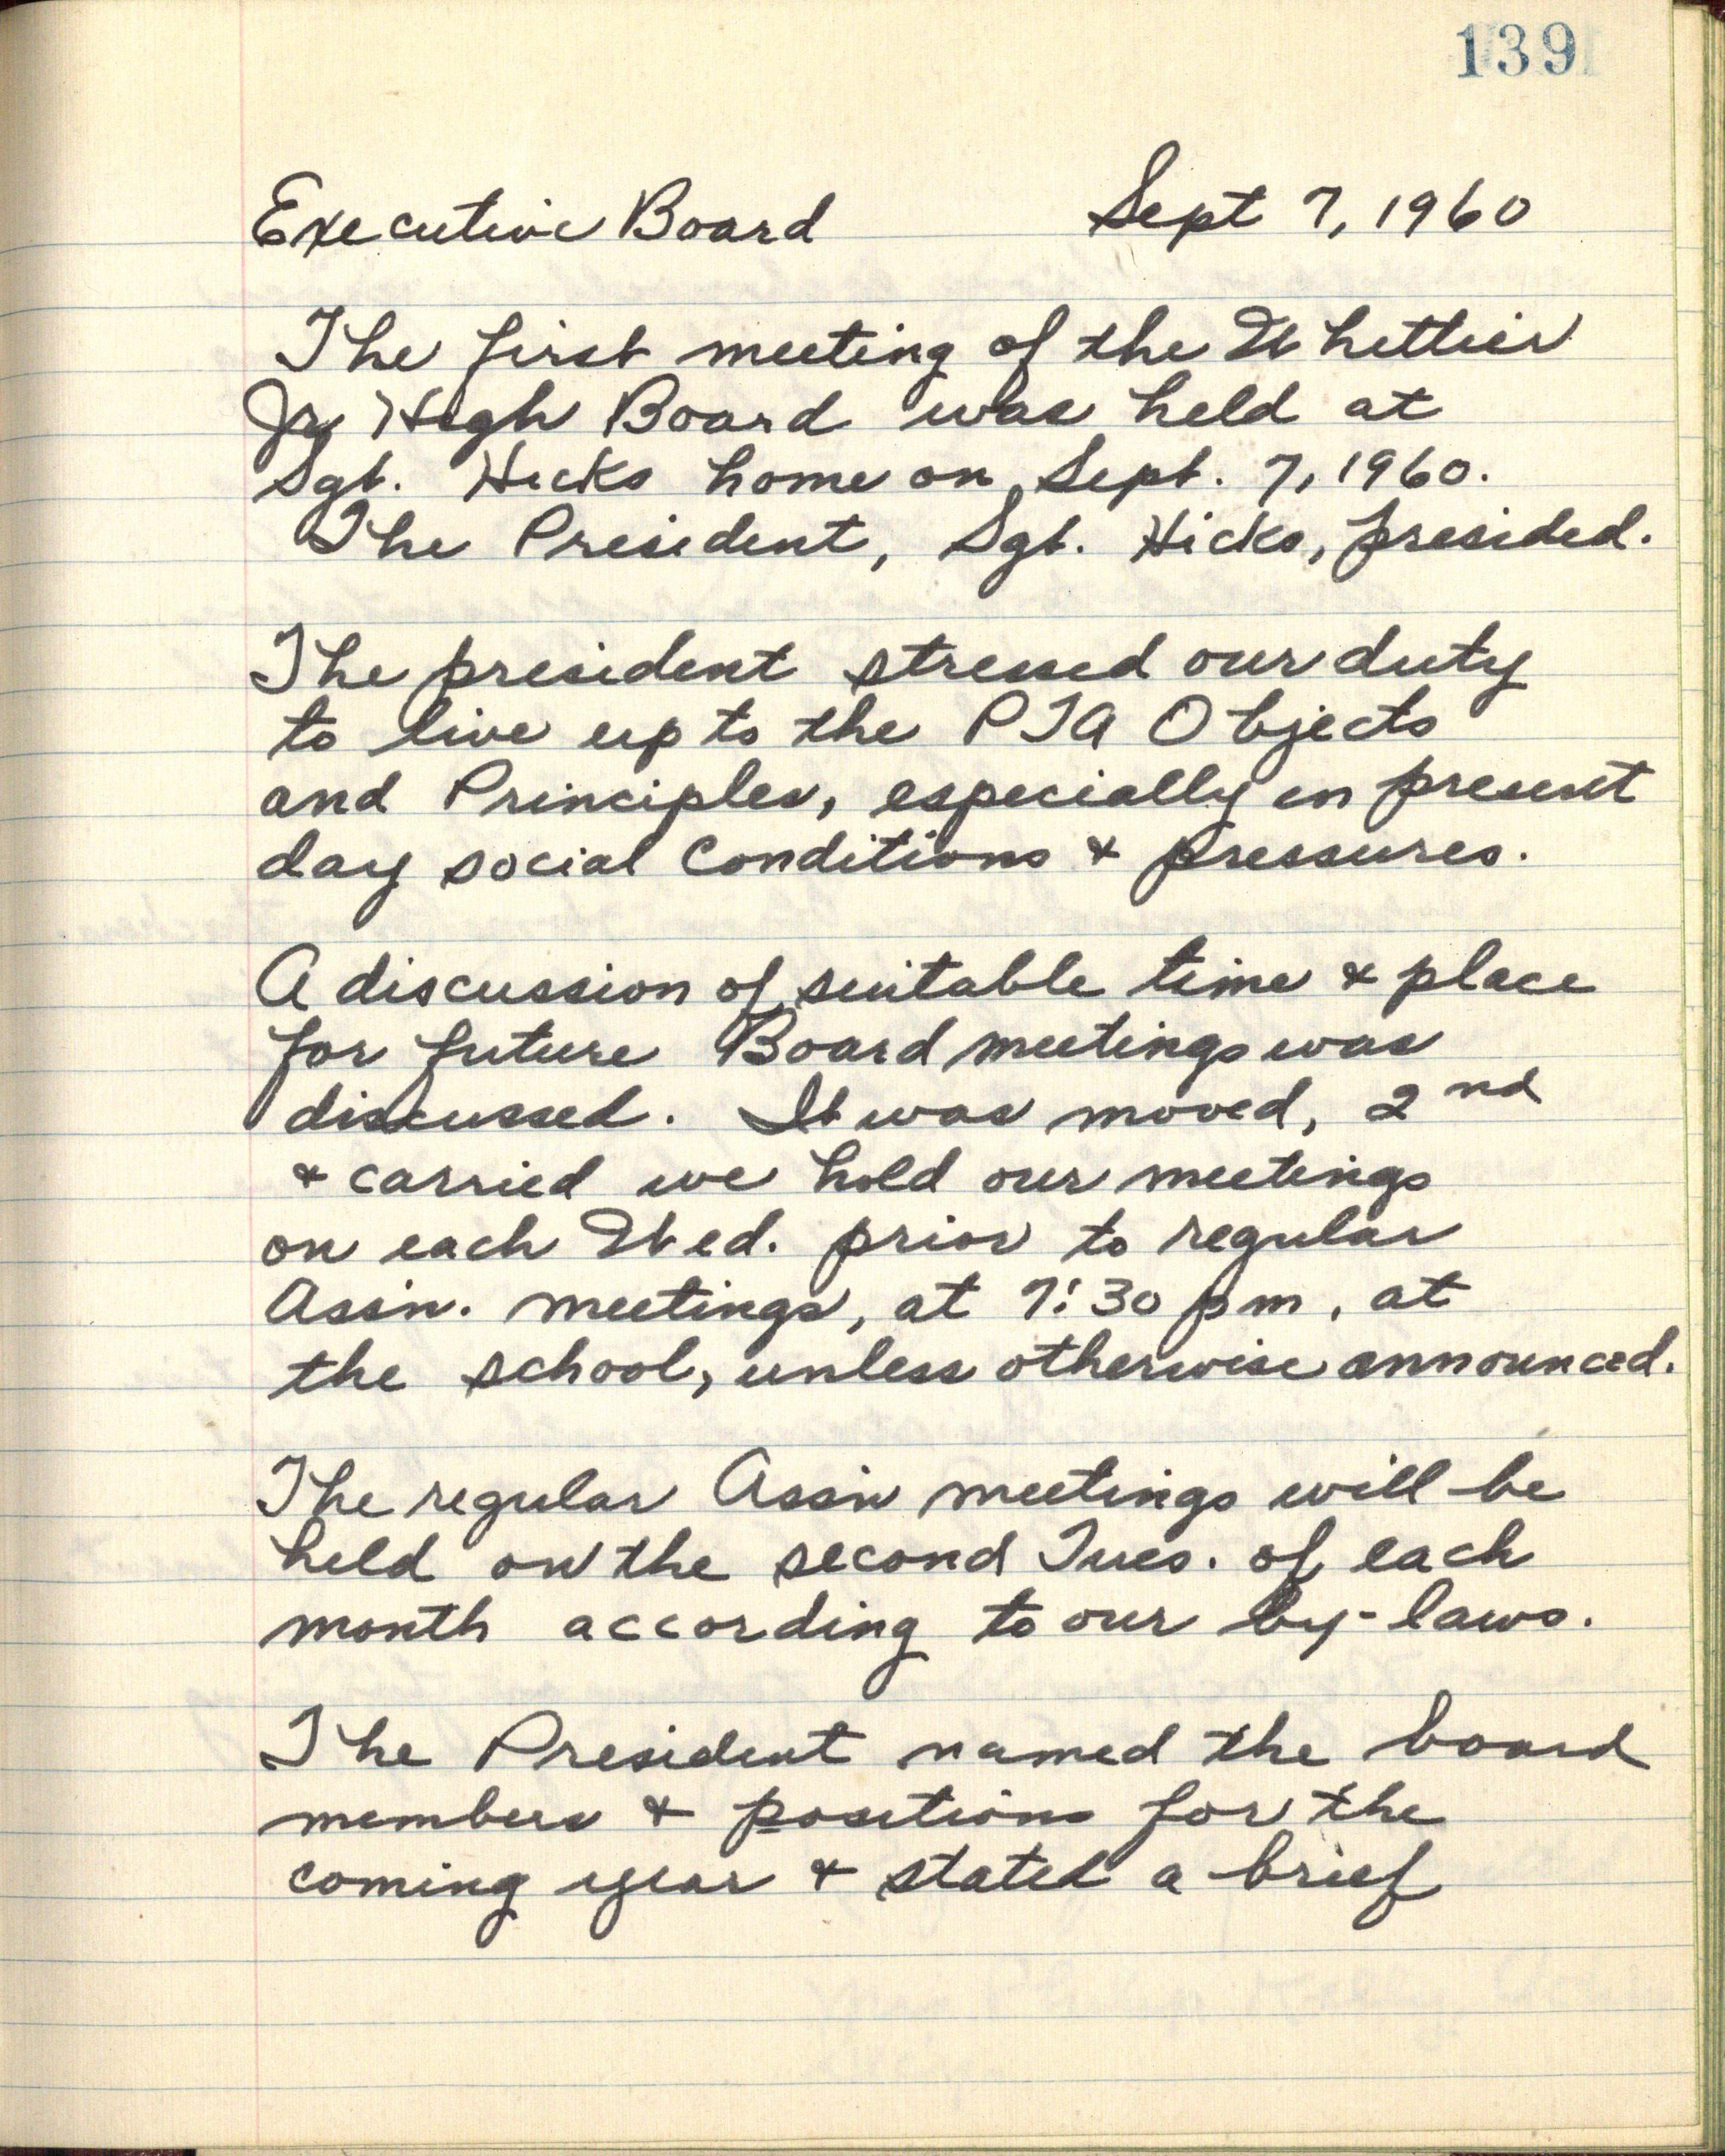 139
Executive Board Sept 7, 1960
The first meeting of the Whittier
Jr High Board was held at
Sgt. Hicks home on Sept. 7, 1960.
The President, Sgt. Hicks, presided.
The president stressed our duty
to live up to the PTA Objects
and Principles, especially in present
day social conditions & pressures.
A discussion of suitable time & place
for future Board meetings was
discussed. It was moved, 2nd
& carried we hold our meetings
on each Wed. prior to regular
Assn. meetings, at 7:30 pm, at
the school, unless otherwise announced.
The regular Assn meetings will be
held on the second Tues. of each
month according to our by-laws.
The President named the board
members & positions for the
coming year & stated a brief